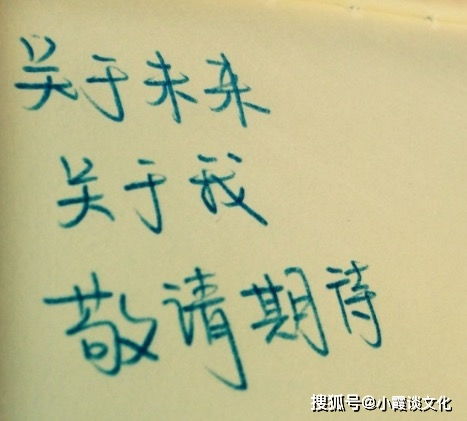 关于未来
关于我
敬请期待
搜狐号@小霞谈文化